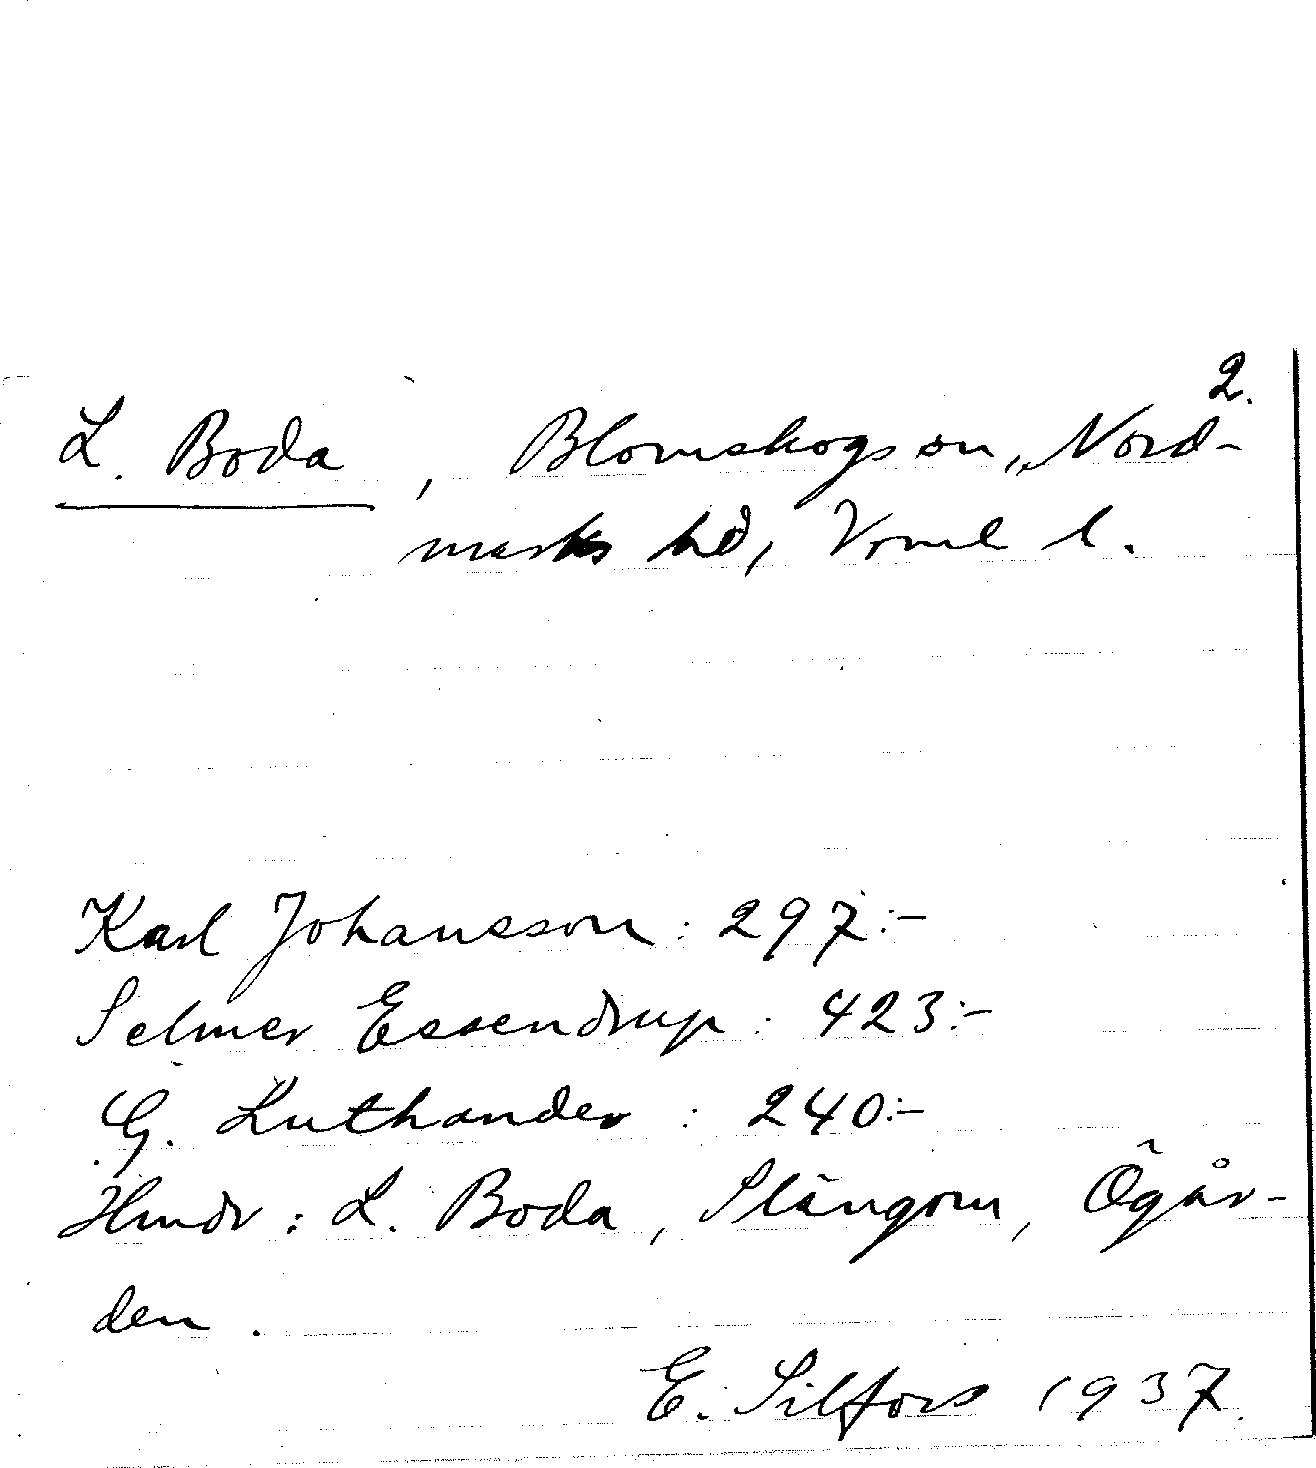 2.
L. Boda, Blomskogs sn, Nord-
marks hd, Vrml l.
Karl Johansson: 297:-
Selmer Essendrup: 423:-
G. Luthander: 240:-
Hmdr: L. Boda, Slängom, Ögår-
den.
E. Silfors 1937.